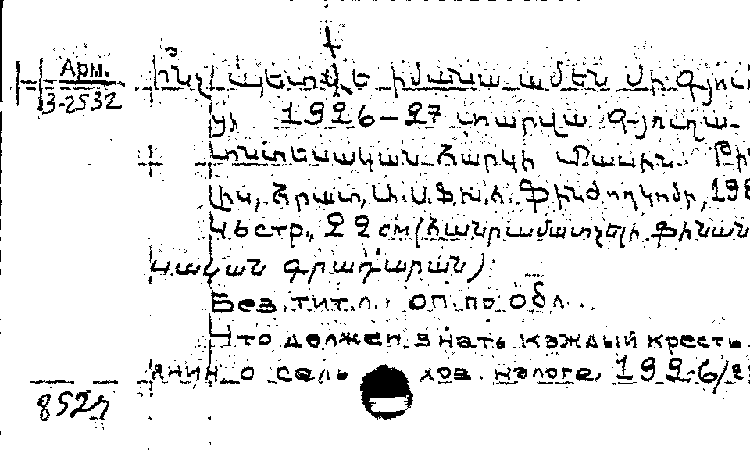 Арм.
3-2532
Ինչ պետք է իմանա ամեն մի գյուղ
ցի 1926-27 տարվա գյուղա-
տնտեսական հարկի մասին.
լիս, հրատ,
46 стр., 22 см (հանրամատչելի ֆինան
սական գրադարան)
Без тит. л. оп. по обл.
Что должен знать каждый кресть
янин о сельхоз. налоге 1926/2
852